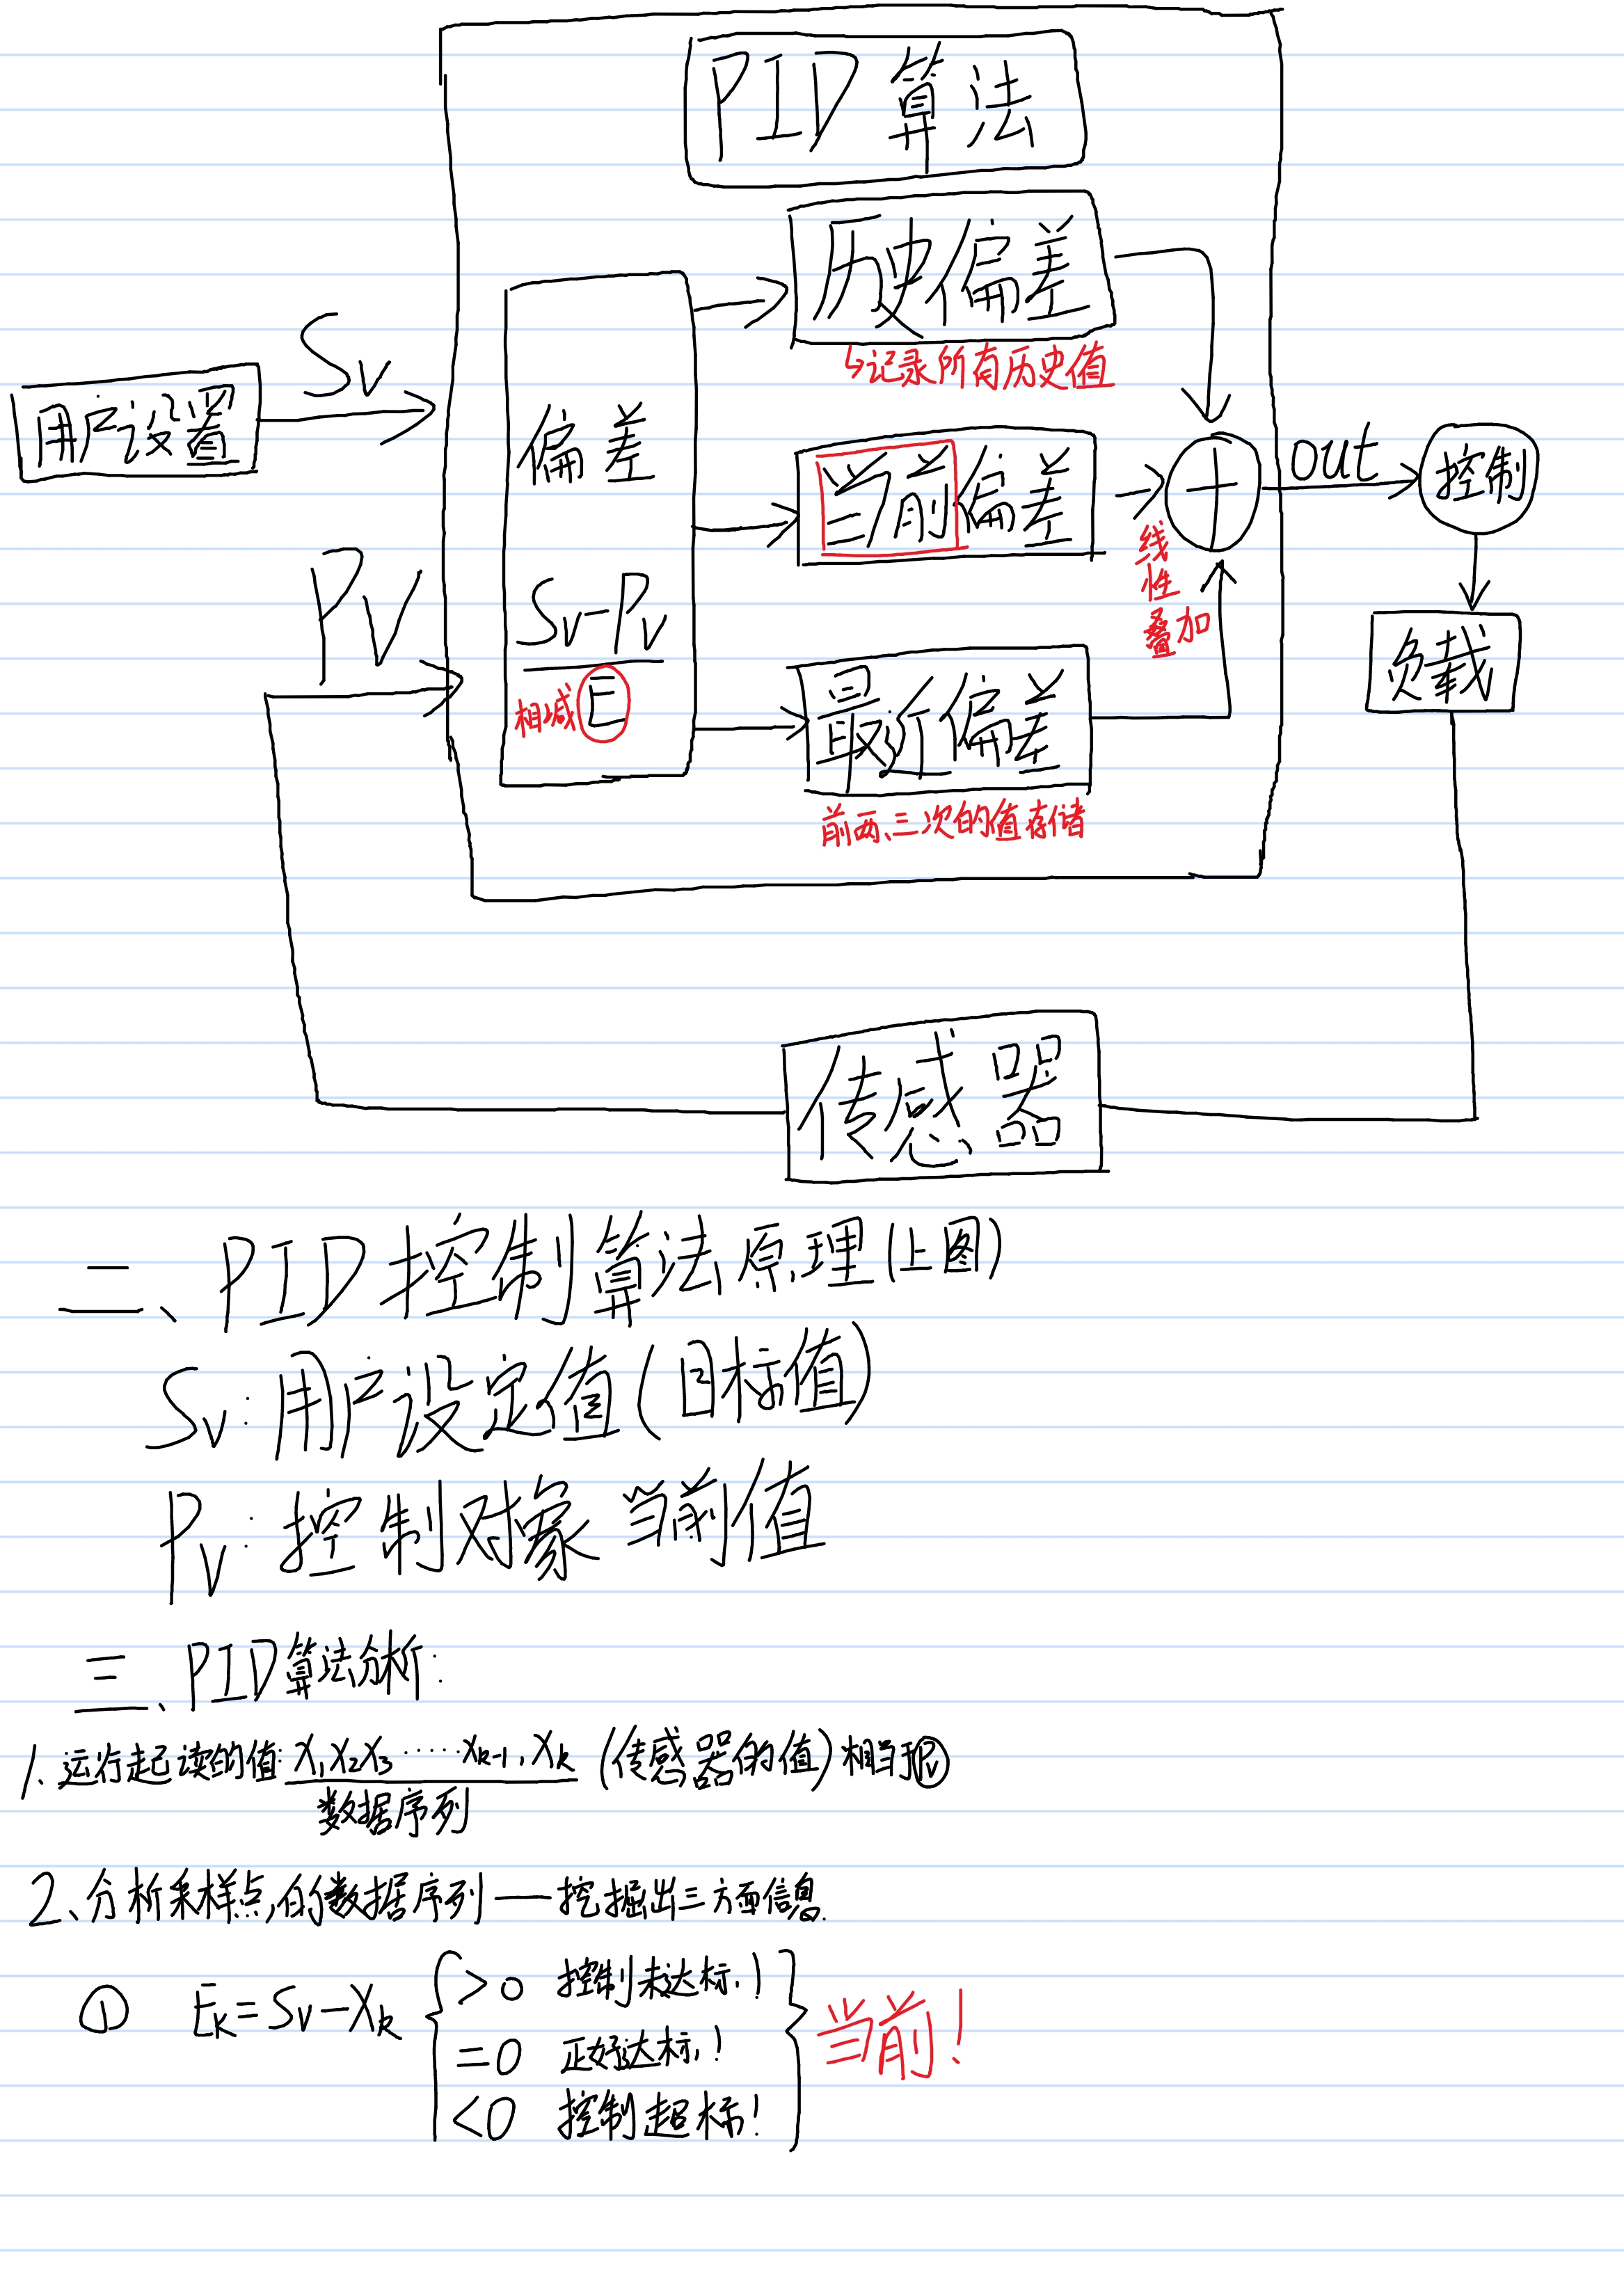 PID 算法
历史偏差
↳记录所有历史值
Sv
用户设置
偏差
当前偏差
out
控制
线性叠加
Pv
Sv-Pv
相减 E
负载
最近偏差
前两、三次的值存储
传感器
二、PID控制算法原理(上图)
Sv:用户设定值(目标值)
Pv:控制对象当前值
三、PID算法分析:
1、运行起读的值:X₁X₂X₃·····Xk-1,Xk(传感器的值)相当于Pv
数据序列
2、分析采样点的数据序列——挖掘出三方面信息.
>0 控制未达标!
① Ek=Sv-Xk
=0 正好达标!
当前!
<0 控制超标!